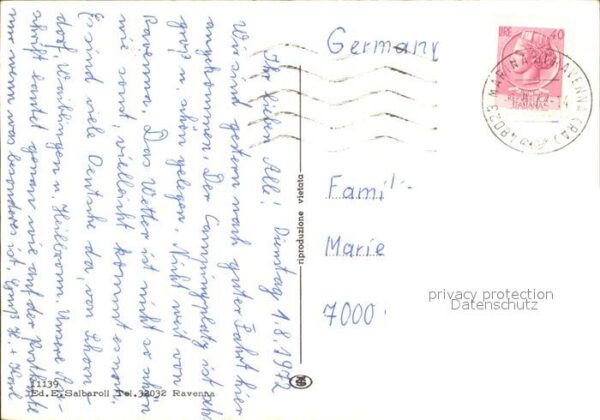 Germany
LIRE 40
ITALIANA
48023 MARINA DI RAVENNA (RA)
Ihr lieben All! Dienstag 1.8.1972
Wir sind gestern nach guter Fahrt hier
angekommen. Der Campingplatz ist sehr
groß u. schön gelegen. Nicht weit von
Ravenna. Das Wetter ist nicht so schön
wie sonst, vielleicht kommt es noch.
Es sind viele Deutsche da, von
dorf, Waiblingen u. Heilbronn. Unsere
schrift lautet genau wie auf der Postkarte
wenn was besonderes ist.
Famil
Marie
7000
privacy protection
Datenschutz
riproduzione vietata
11139
Ed. E. Salbaroli Tel. 32032 Ravenna